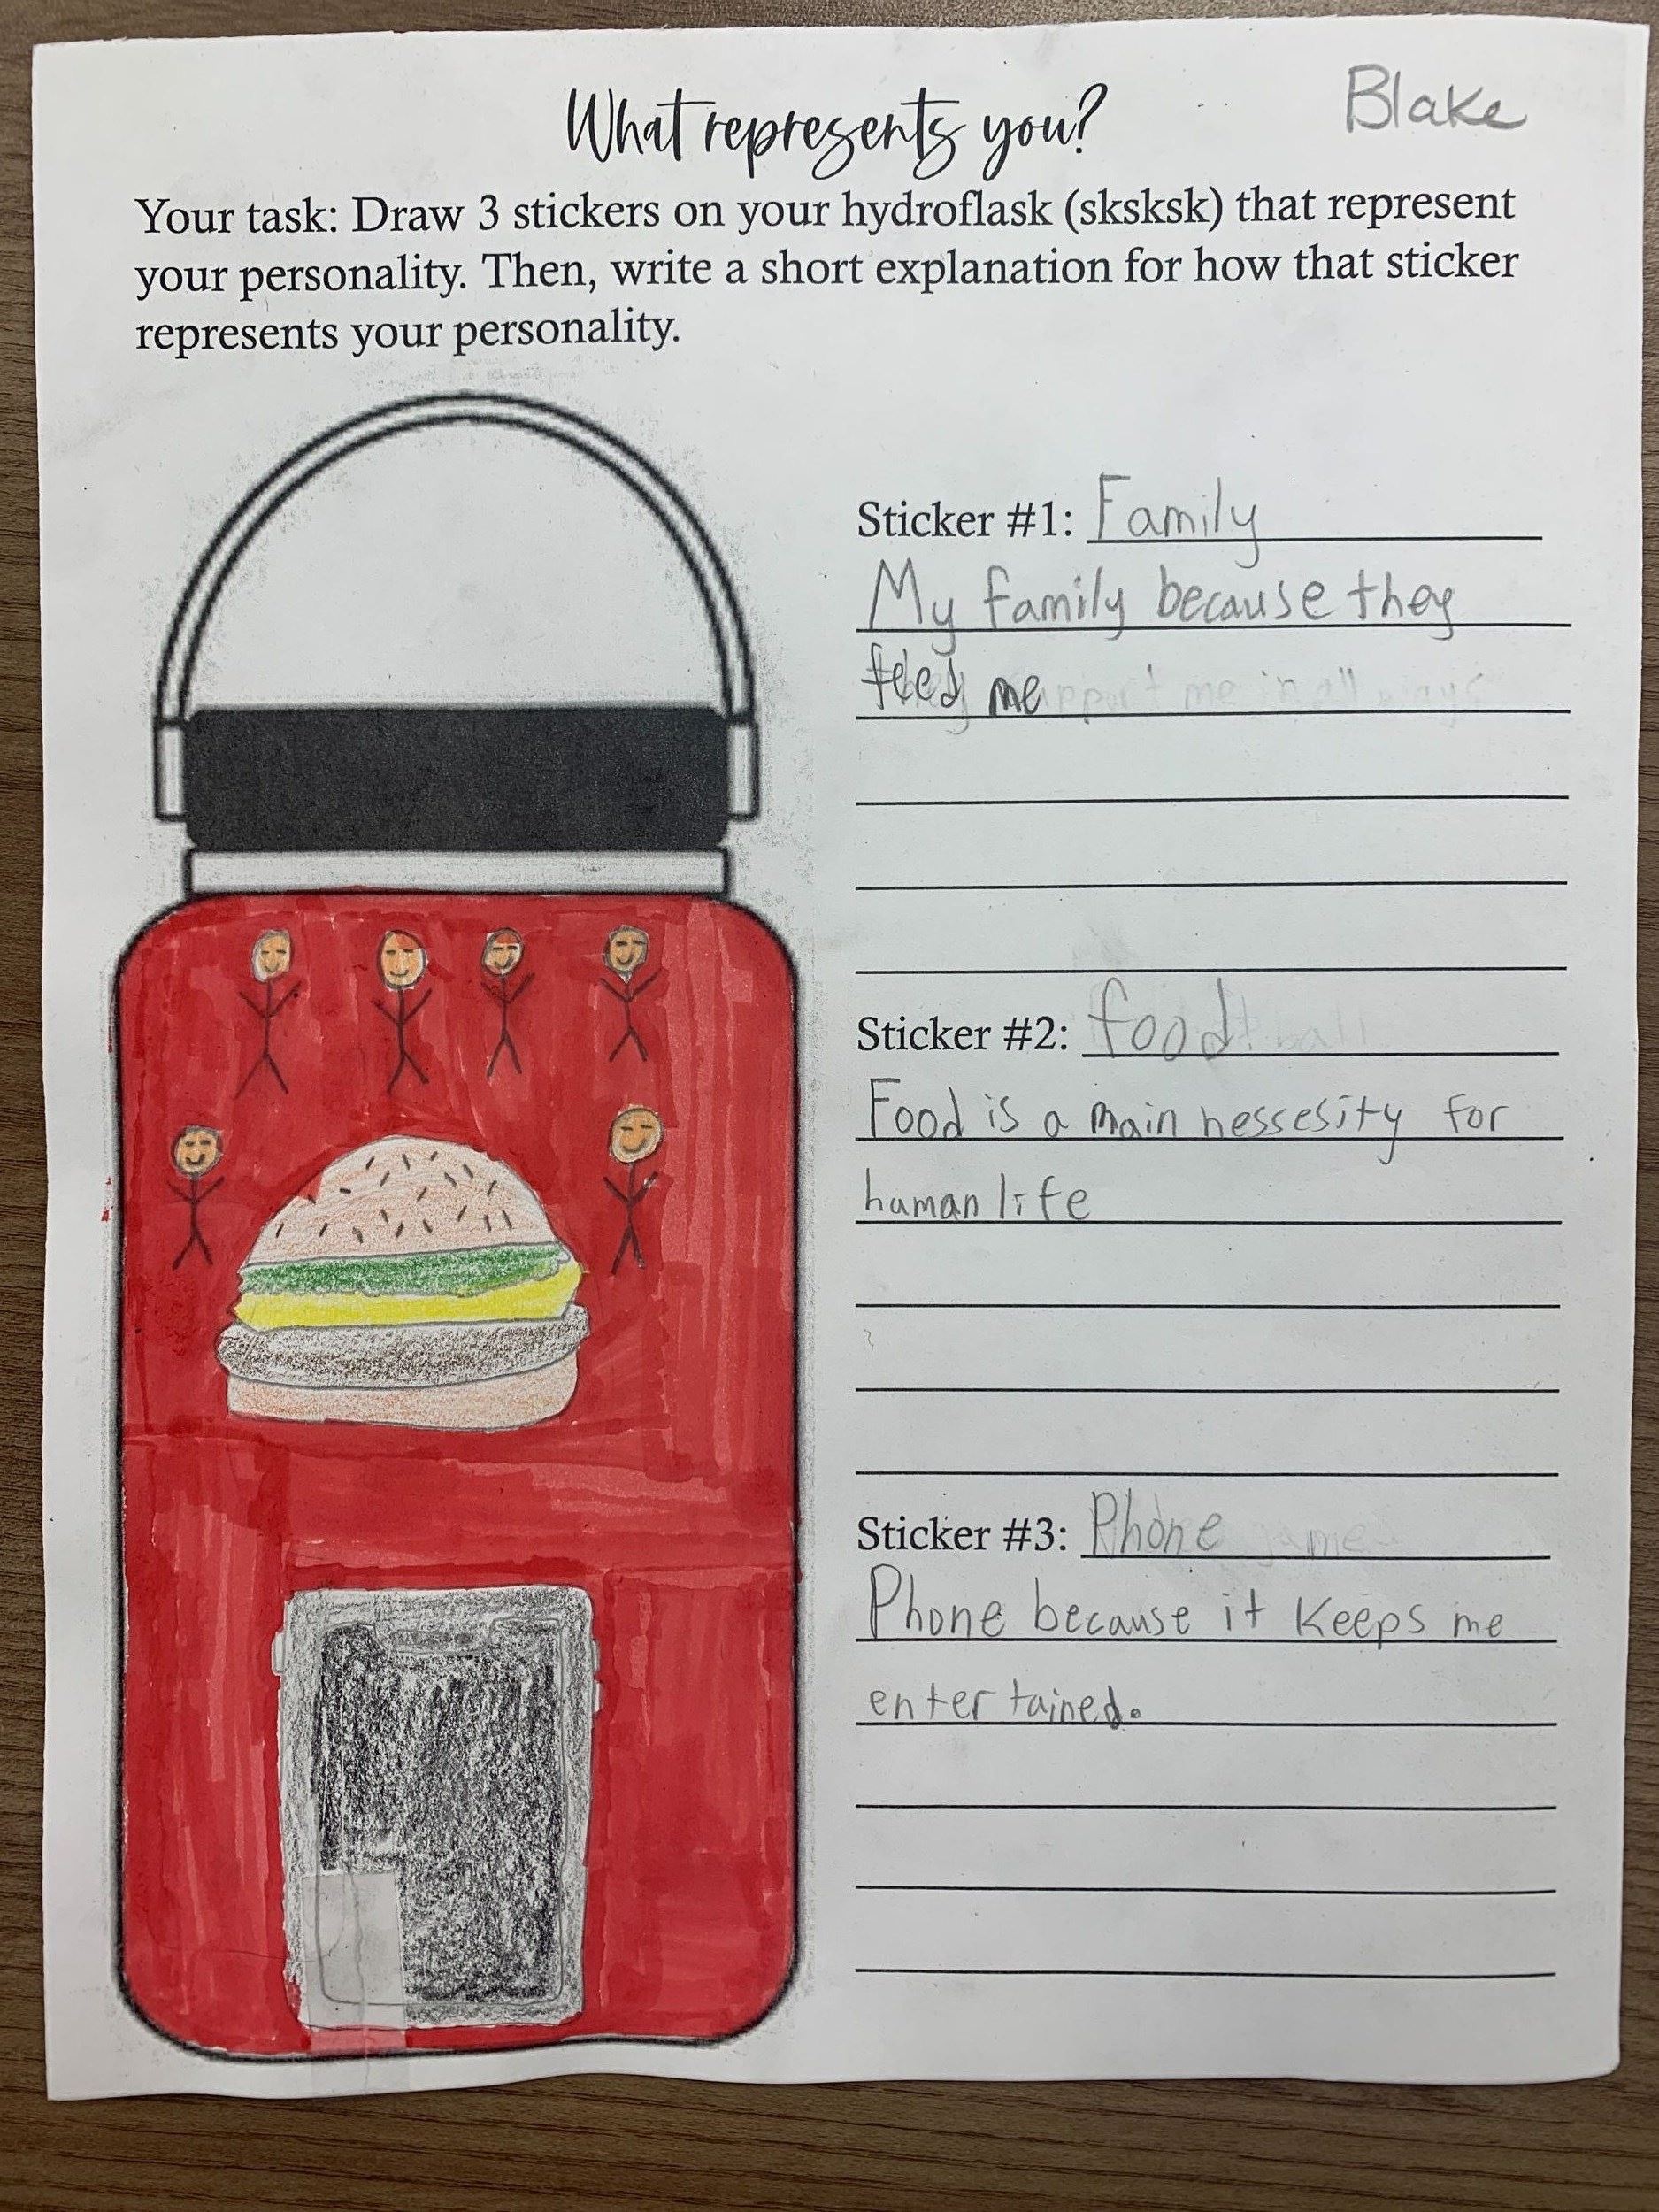 Blake
What represents you?
Your task: Draw 3 stickers on your hydroflask (sksksk) that represent
your personality. Then, write a short explanation for how that sticker
represents your personality.
Sticker #1: Family
My family because they
feed me
Sticker #2: food
Food is a main nessesity for
human life
Sticker #3: Phone
Phone because it keeps me
entertained.